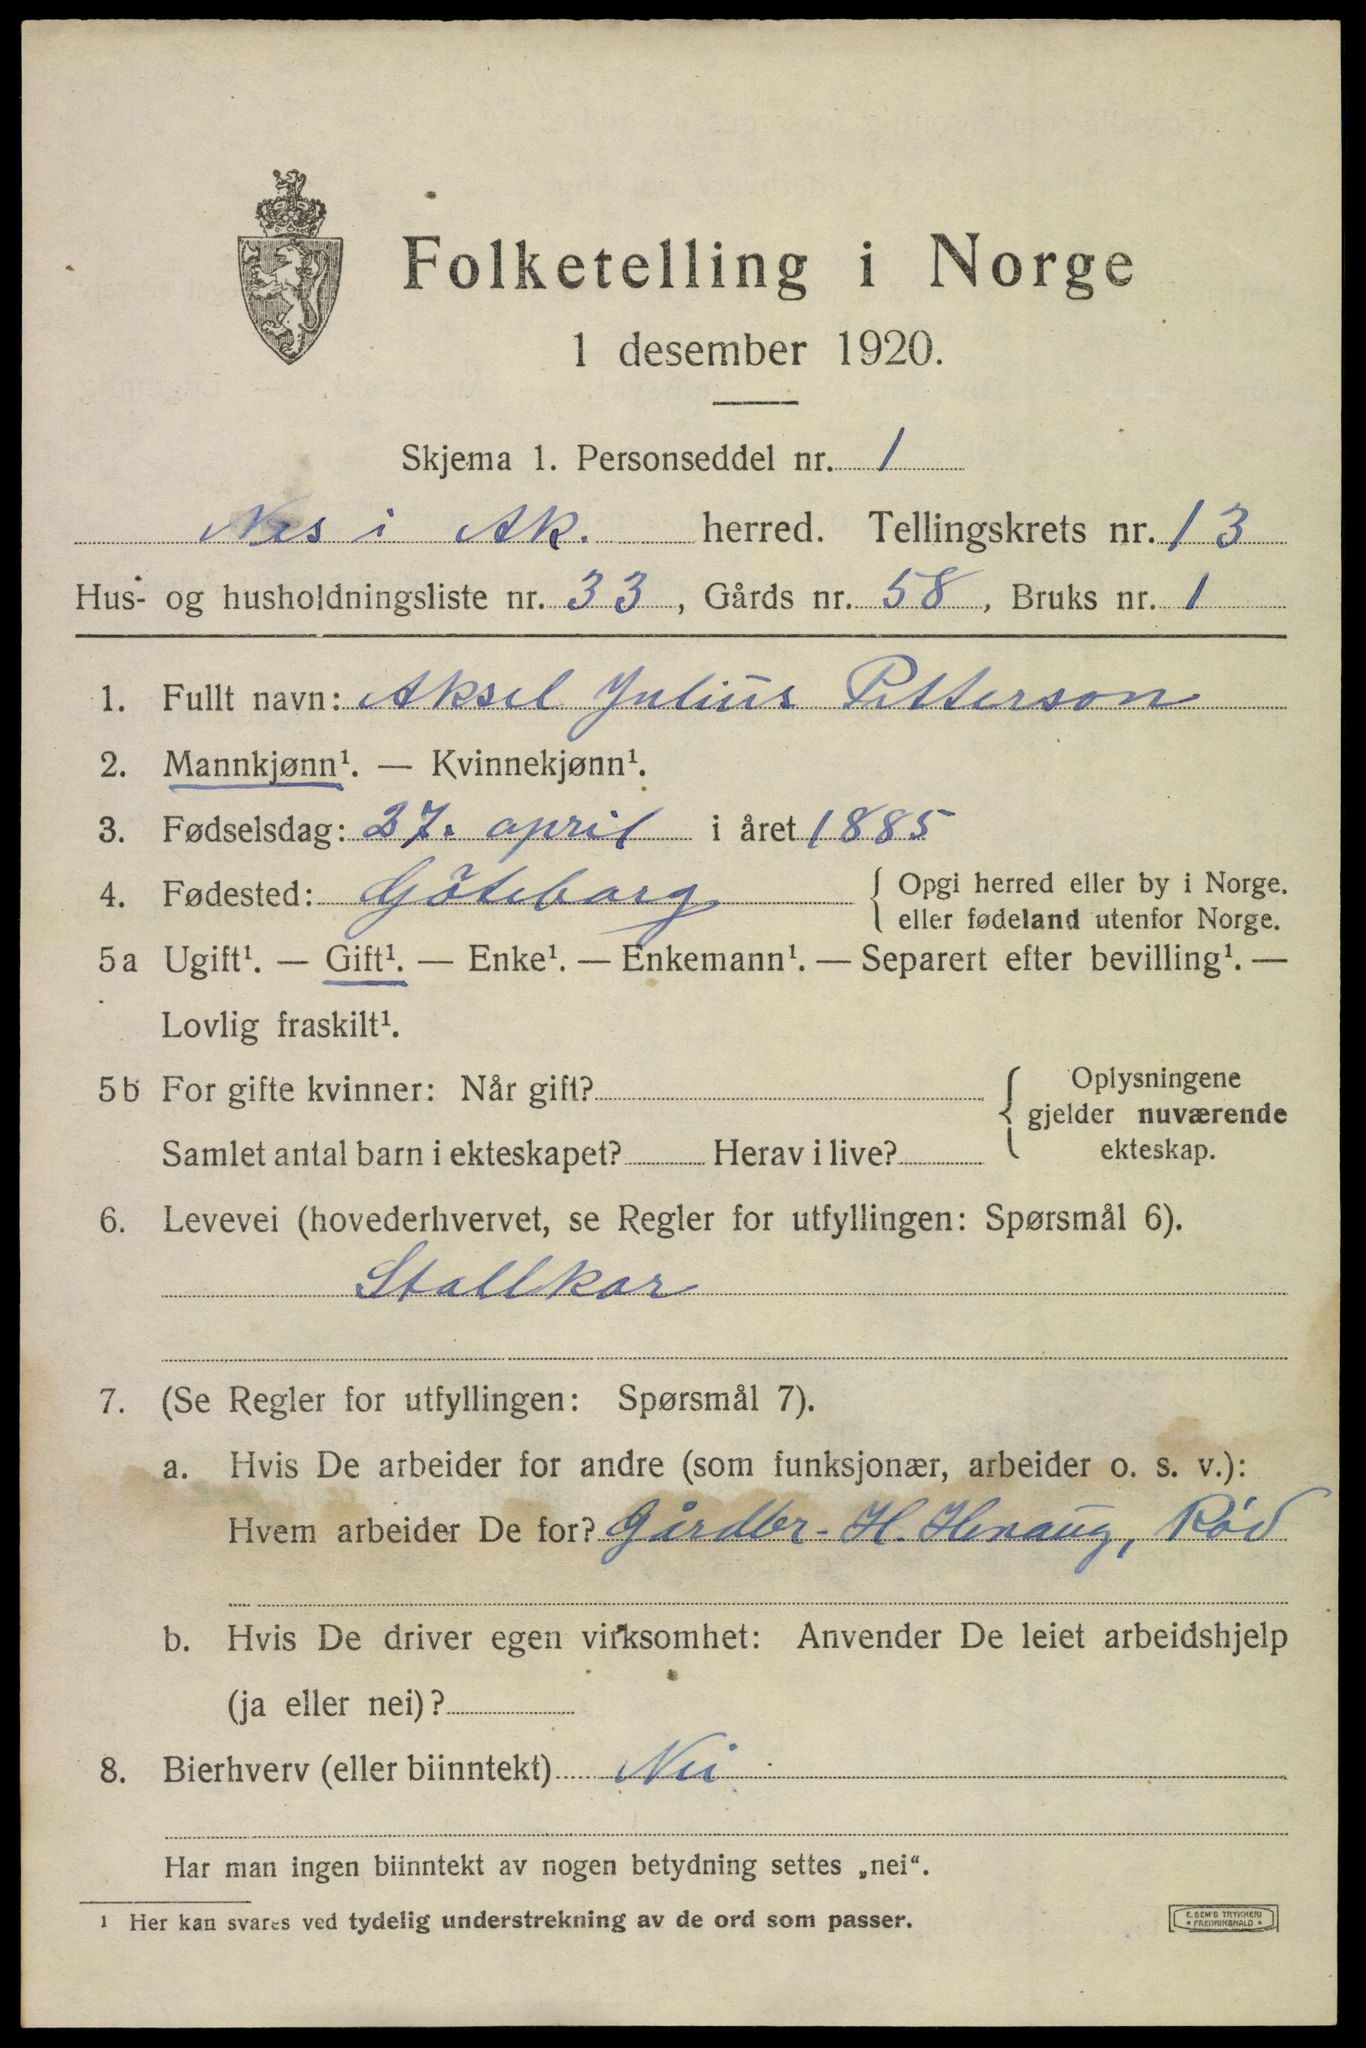 Folketelling i Norge
1 desember 1920.
Skjema 1. Personseddel nr. 1
Nes i Ak. herred. Tellingskrets nr. 13
Hus- og husholdningsliste nr. 33, Gårds nr. 58, Bruks nr. 1
1. Fullt navn: Aksel Julius Petterson
2. Mannkjønn¹. — Kvinnekjønn¹.
3. Fødselsdag: 27. april i året 1885
4. Fødested: Göteborg { Opgi herred eller by i Norge.
eller fødeland utenfor Norge.
5a Ugift¹. — Gift¹. — Enke¹. — Enkemann¹. — Separert efter bevilling¹. —
Lovlig fraskilt¹.
5b For gifte kvinner: Når gift? { Oplysningene
gjelder nuværende
Samlet antal barn i ekteskapet? Herav i live? ekteskap.
6. Levevei (hovederhvervet, se Regler for utfyllingen: Spørsmål 6).
Stallkar
7. (Se Regler for utfyllingen: Spørsmål 7).
a. Hvis De arbeider for andre (som funksjonær, arbeider o. s. v.):
Hvem arbeider De for? Gårdbr. H. Henaug, Rød
b. Hvis De driver egen virksomhet: Anvender De leiet arbeidshjelp
(ja eller nei)?
8. Bierhverv (eller biinntekt) Nei
Har man ingen biinntekt av nogen betydning settes „nei“.
1 Her kan svares ved tydelig understrekning av de ord som passer.
E. SEM'S TRYKKERI
* FREDRIKSHALD *